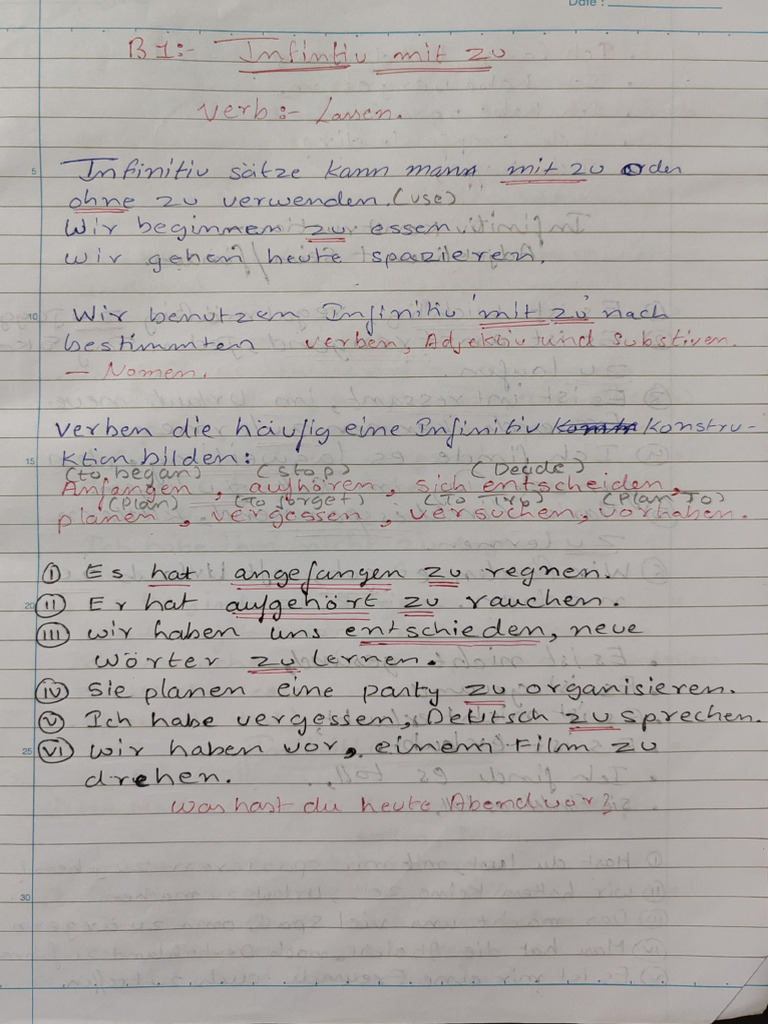 Date :
B1:- Infintiv mit zu
Verb:- Lassen.
5 Infinitiv sätze kann mann mit zu oder
ohne zu verwenden. (use)
Wir beginnen zu essen.
Wir gehen heute spazieren.
10 Wir benutzen Infinitiv 'mit zu' nach
bestimmten verben, Adjektiv und Substiven.
- Nomen.
Verben die häufig eine Infinitiv Konstru-
15 ktion bilden:
(to began) (stop) (Decide)
Anfangen, aufhören, sich entscheiden,
(Plan) (To forget) (To Try) (Plan To)
planen, vergessen, versuchen, vorhaben.
i Es hat angefangen zu regnen.
20 ii Er hat aufgehört zu rauchen.
iii wir haben uns entschieden, neue
wörter zu lernen.
iv Sie planen eine party zu organisieren.
v Ich habe vergessen, Deutsch zu sprechen.
25 vi wir haben vor, einem Film zu
drehen.
was hast du heute Abend vor?
30